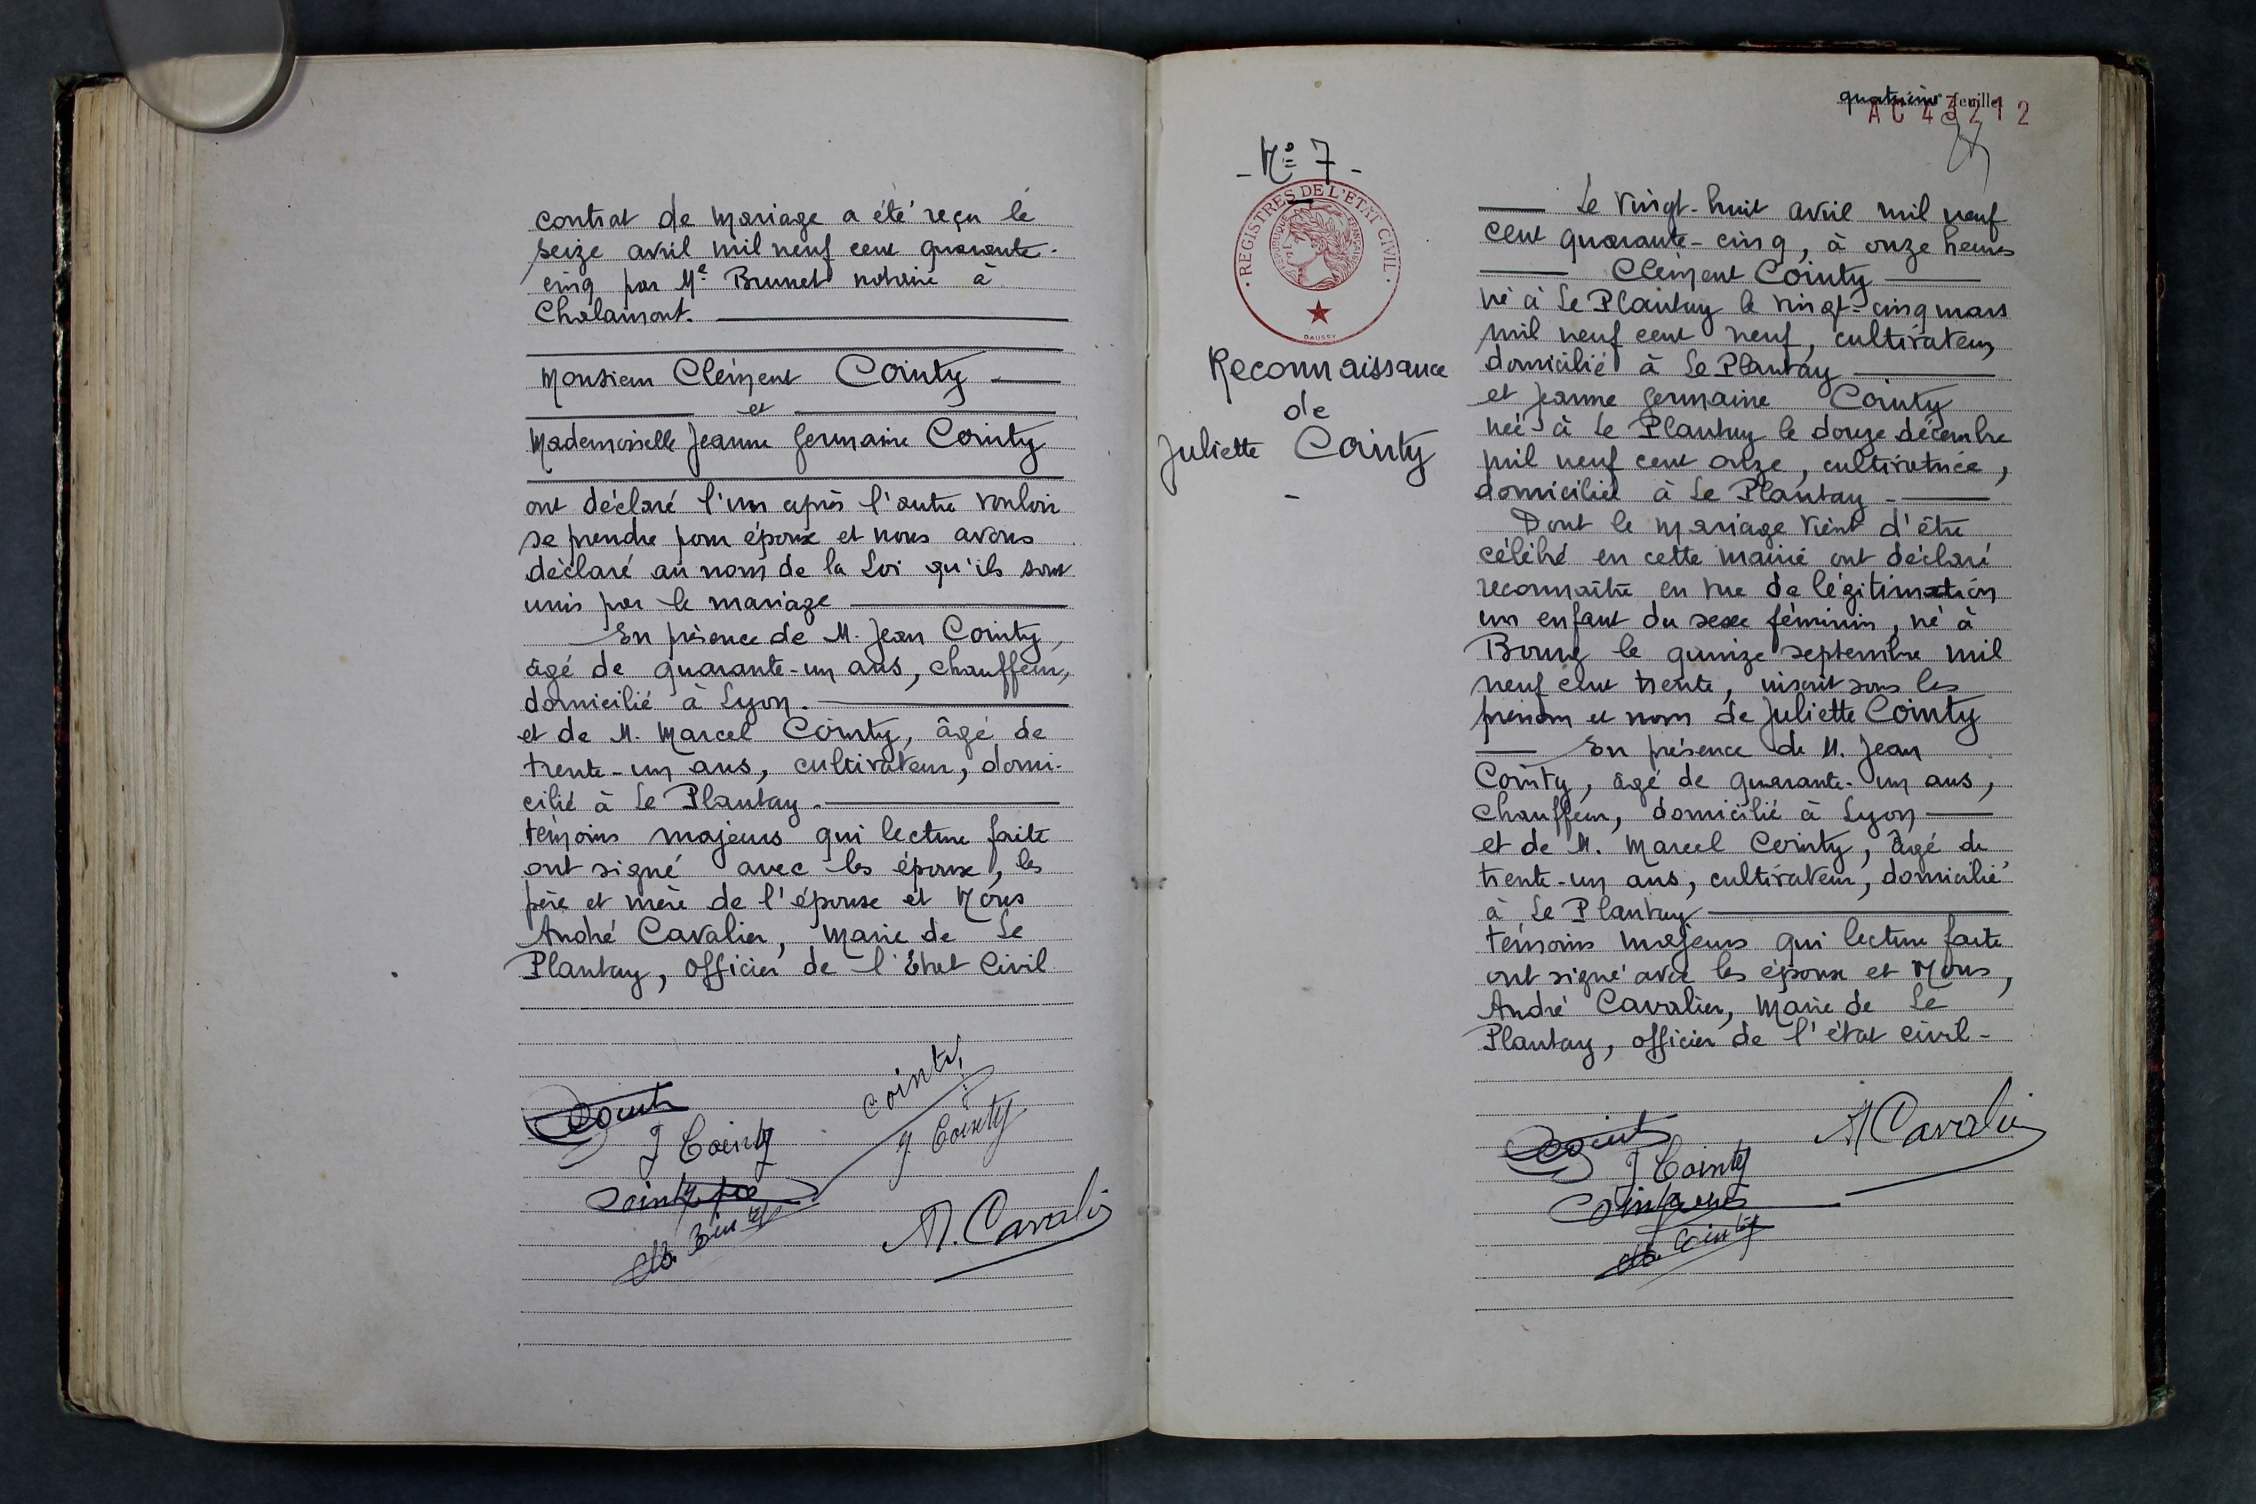 contrat de mariage a été reçu le
seize avril mil neuf cent quarante-
cinq par Me Brunet notaire à
Chalamont.
Monsieur Clément Cointy
et
Mademoiselle Jeanne Germaine Cointy
ont déclaré l'un après l'autre vouloir
se prendre pour époux et nous avons
déclaré au nom de la Loi qu'ils sont
unis par le mariage
En présence de M. Jean Cointy,
âgé de quarante-un ans, chauffeur,
domicilié à Lyon.
et de M. Marcel Cointy, âgé de
trente-un ans, cultivateur, domi-
cilié à Le Plantay.
témoins majeurs qui lecture faite
ont signé avec les époux, les
père et mère de l'épouse et Nous
André Cavalier, Maire de Le
Plantay, Officier de l'Etat Civil
Cointy
J Cointy
Cointy
J. Cointy
A. Cavalier
quatrième feuillet
AC 43212
- No 7 -
REGISTRES DE L'ETAT CIVIL
REPUBLIQUE FRANÇAISE
DAUSSY
Reconnaissance
de
Juliette Cointy
-
Le vingt-huit avril mil neuf
cent quarante-cinq, à onze heures
Clément Cointy
né à Le Plantay le vingt-cinq mars
mil neuf cent neuf, cultivateur,
domicilié à Le Plantay
et Jeanne Germaine Cointy
née à Le Plantay le douze décembre
mil neuf cent onze, cultivatrice,
domiciliée à Le Plantay -
Dont le mariage vient d'être
célébré en cette mairie ont déclaré
reconnaître en vue de légitimation
un enfant du sexe féminin, né à
Bourg le quinze septembre mil
neuf cent trente, inscrit sous les
prénom et nom de Juliette Cointy
En présence de M. Jean
Cointy, âgé de quarante-un ans,
chauffeur, domicilié à Lyon
et de M. Marcel Cointy, âgé de
trente-un ans, cultivateur, domicilié
à Le Plantay
témoins majeurs qui lecture faite
ont signé avec les époux et Nous,
André Cavalier, Maire de Le
Plantay, officier de l'état civil -
Cointy
A Cavalier
J Cointy
Cointy